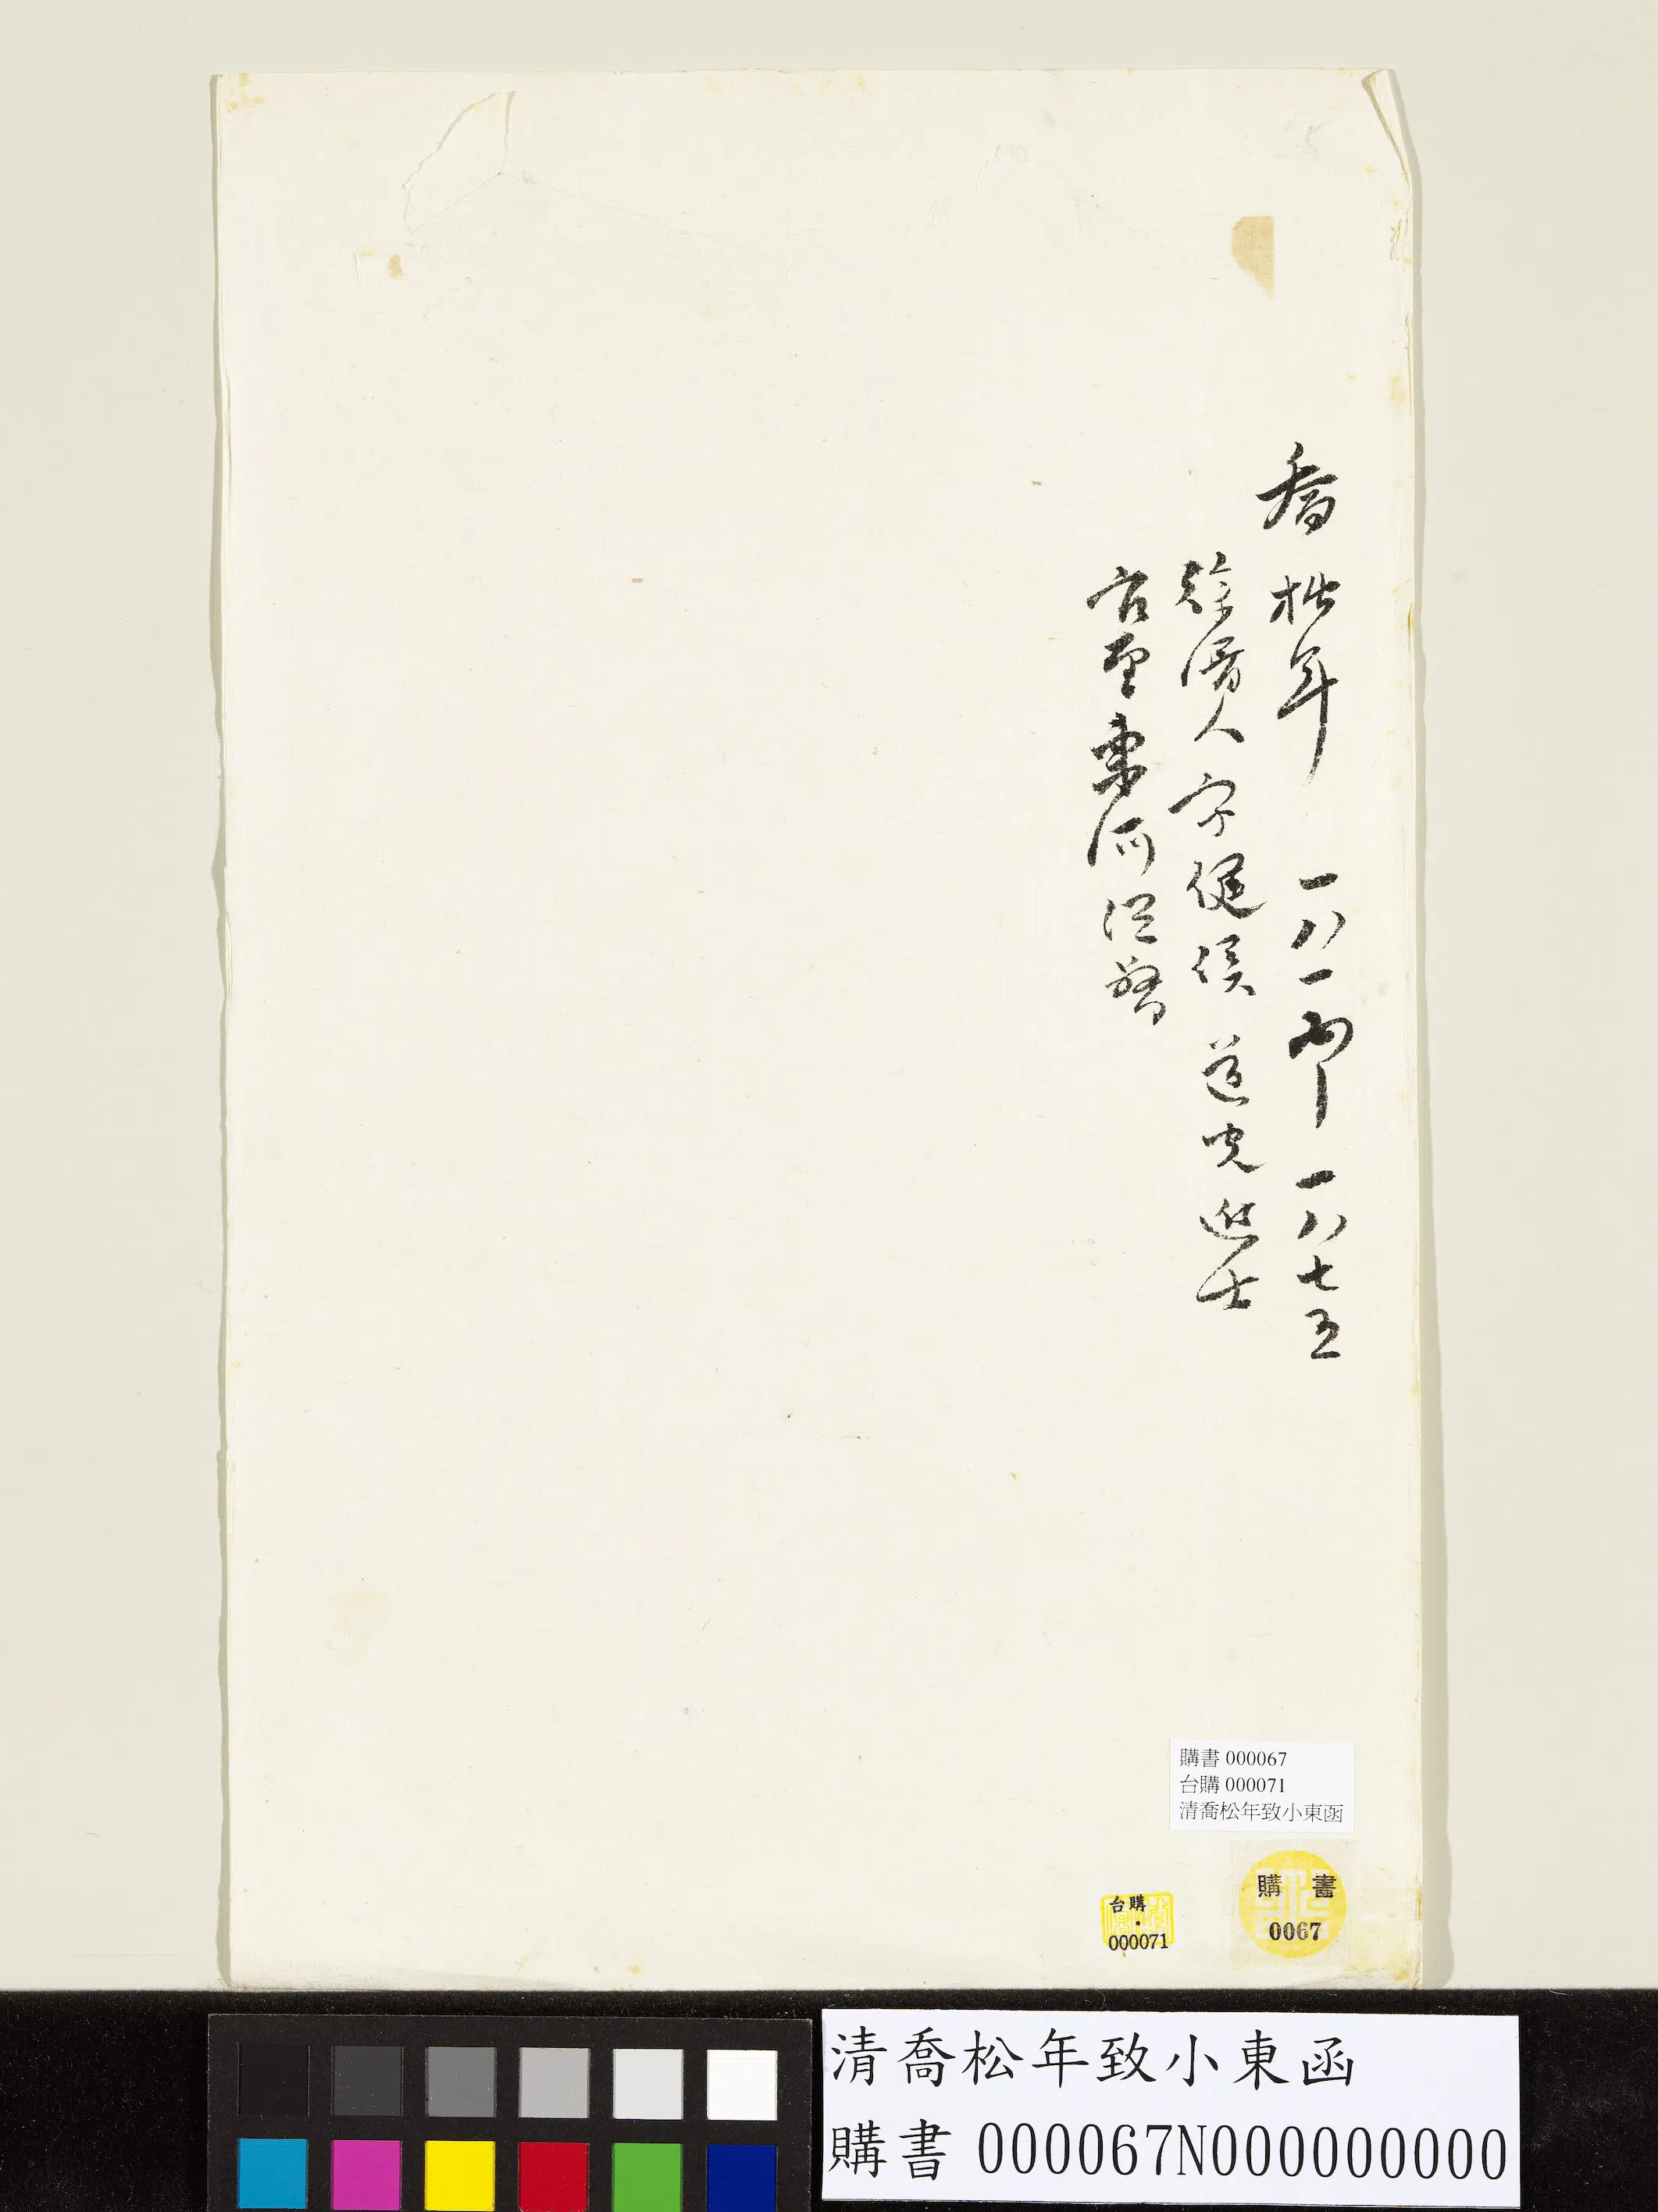 喬松年 一八一五—一八七五
徐溝人 字健侯 道光進士
官至東河總督
購書 000067
台購 000071
清喬松年致小東函
購書
0067
台購
000071
清喬松年致小東函
購書 000067N000000000